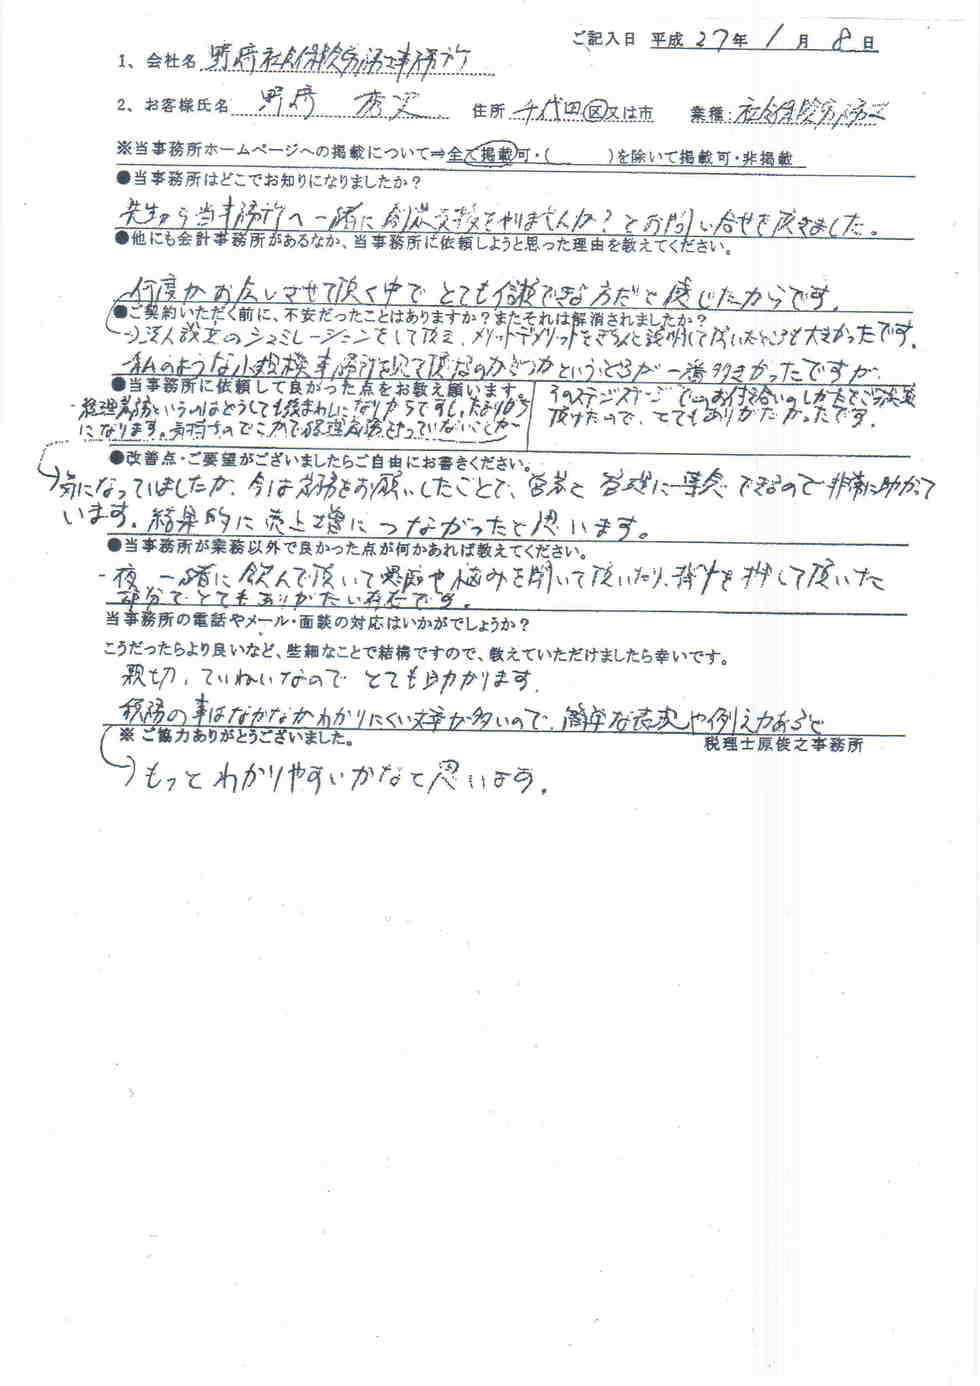 ご記入日 平成 27年 1月 8日
1、会社名 野崎社会保険労務士事務所
2、お客様氏名 野崎 住所 千代田区又は市 業種: 社会保険労務士
※当事務所ホームページへの掲載について⇒全て掲載可・( )を除いて掲載可・非掲載
●当事務所はどこでお知りになりましたか?
先生から当事務所へ一緒に創業支援をやりませんか?とお問い合せを頂きました。
●他にも会計事務所があるなか、当事務所に依頼しようと思った理由を教えてください。
何度かお会いさせて頂く中でとても信頼できる方だと感じたからです。
●ご契約いただく前に、不安だったことはありますか?またそれは解消されましたか?
→法人設立のシュミレーションをして頂き、メリットデメリットをきちんと説明して頂いたところも大きかったです。
私のような小規模事務所を見て頂けるのかどうかというところが一番大きかったですが、
●当事務所に依頼して良かった点をお教え願います。
そのステージステージでのお付き合いのしかたをご提案
頂けたので、とてもありがたかったです。
・経理業務というのはどうしても後まわしになりがちですし、たまりがち
になります。気持ちのどこかで経理業務をやっていないことが
●改善点・ご要望がございましたらご自由にお書きください。
→気になっていましたが、今は業務をお願いしたことで、営業と 業務に専念できるので非常に助かって
います。結果的に売上増につながったと思います。
●当事務所が業務以外で良かった点が何かあれば教えてください。
・夜、一緒に飲んで頂いて愚痴や悩みを聞いて頂いたり、背中を押して頂いた
部分でとてもありがたい存在です。
当事務所の電話やメール・面談の対応はいかがでしょうか?
こうだったらより良いなど、些細なことで結構ですので、教えていただけましたら幸いです。
親切、ていねいなのでとても助かります。
税務の事はなかなかわかりにくい文章が多いので、簡単な表現や例えがあると
※ ご協力ありがとうございました。
税理士原俊之事務所
→もっとわかりやすいかなと思います。